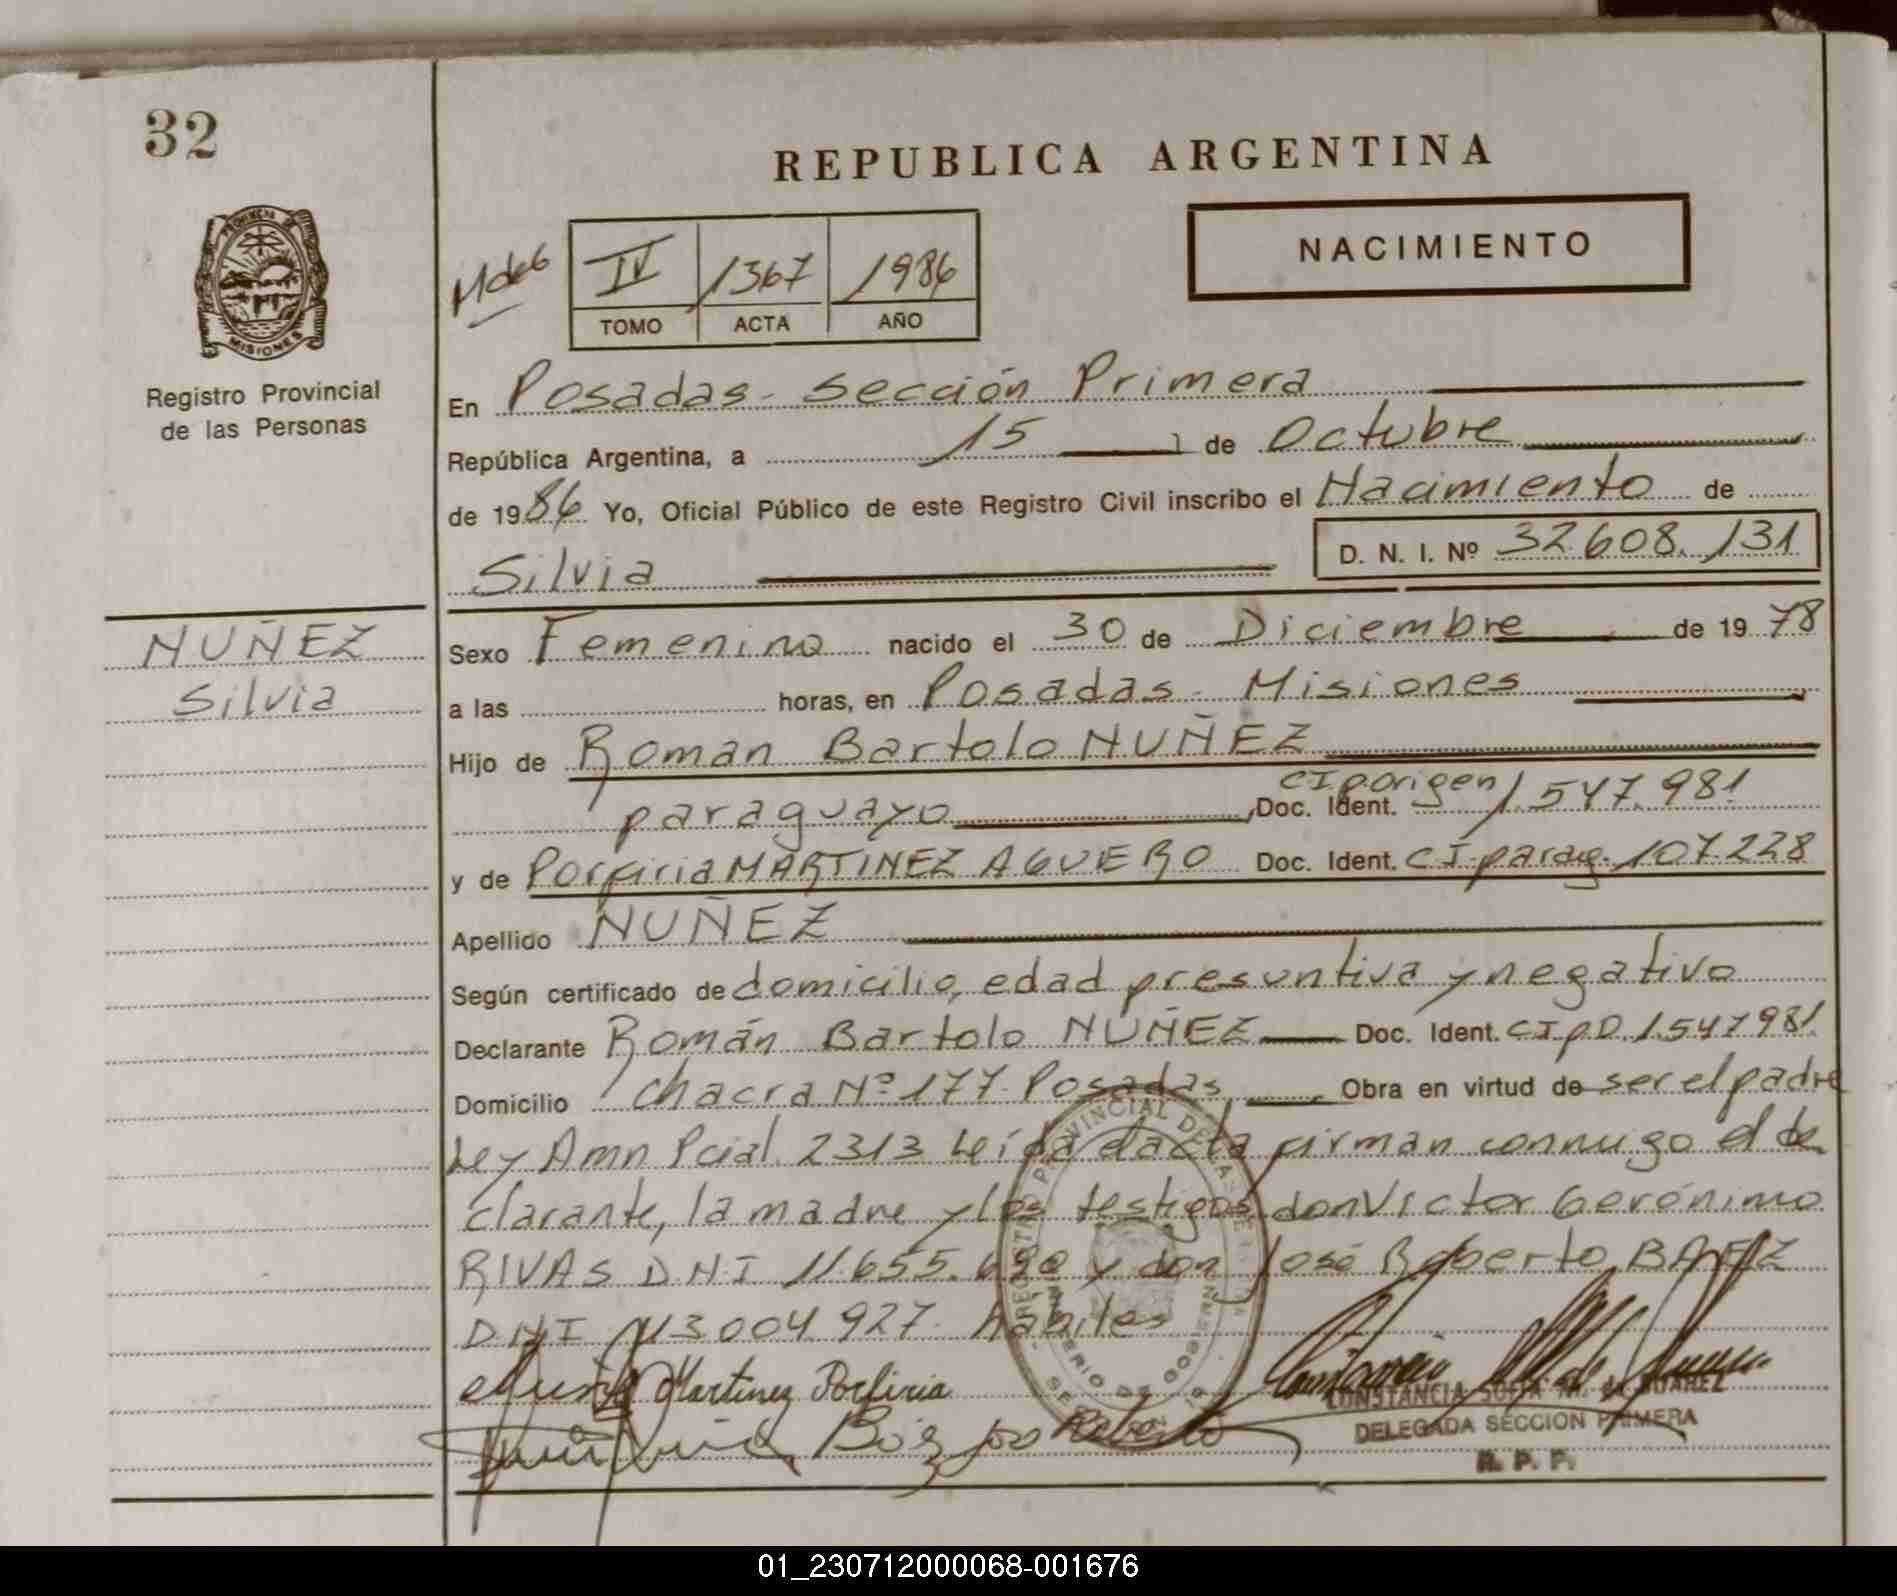 32
REPUBLICA ARGENTINA
PROVINCIA DE
MISIONES
Registro Provincial
de las Personas
IV 1367 1986
TOMO ACTA AÑO
NACIMIENTO
En Posadas - Sección Primera
República Argentina, a 15 de Octubre
de 1986 Yo, Oficial Público de este Registro Civil inscribo el Nacimiento de
Silvia D. N. I. Nº 32.608.131
NUÑEZ
Silvia
Sexo Femenino nacido el 30 de Diciembre de 1978
a las horas, en Posadas - Misiones
Hijo de Roman Bartolo NUÑEZ
paraguayo Doc. Ident. CI p origen 1.547.981
y de Porfiria MARTINEZ AGUERO Doc. Ident. CI parag. 107.228
Apellido NUÑEZ
Según certificado de domicilio, edad presuntiva y negativo
Declarante Román Bartolo NUÑEZ Doc. Ident. CI p O. 1.547 981
Domicilio Chacra Nº 177 - Posadas, Obra en virtud de ser el padre
Ley Amn Pcial. 2313 Leída el acta firman conmigo el de
clarante, la madre y los testigos don Victor Gerónimo
RIVAS DNI 11.655.690 y don José Roberto BAEZ
DNI 13.004.927. hábiles
Martinez Porfiria
Roberto
CONSTANCIA SOFIA M. de SUAREZ
DELEGADA SECCION PRIMERA
R. P. P.
01_230712000068-001676